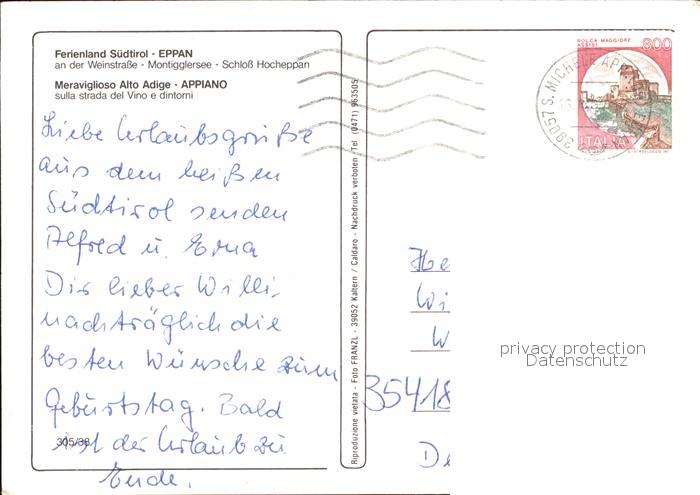 Ferienland Südtirol - EPPAN
an der Weinstraße - Montigglersee - Schloß Hocheppan
Meraviglioso Alto Adige - APPIANO
sulla strada del Vino e dintorni
Liebe Urlaubsgrüße
aus dem heißen
Südtirol senden
Alfred u. Erna
Dir lieber Willi,
nachträglich die
besten Wünsche zum
Geburtstag. Bald
ist der Urlaub zu
Ende.
305/38
Riproduzione vietata - Foto FRANZL - 39052 Kaltern / Caldaro - Nachdruck verboten - Tel. (0471) 963505
ROCCA MAGGIORE
ASSISI
800
ITALIA
39057 S. MICHELE AP
He
Wi
W
35418
De
privacy protection
Datenschutz